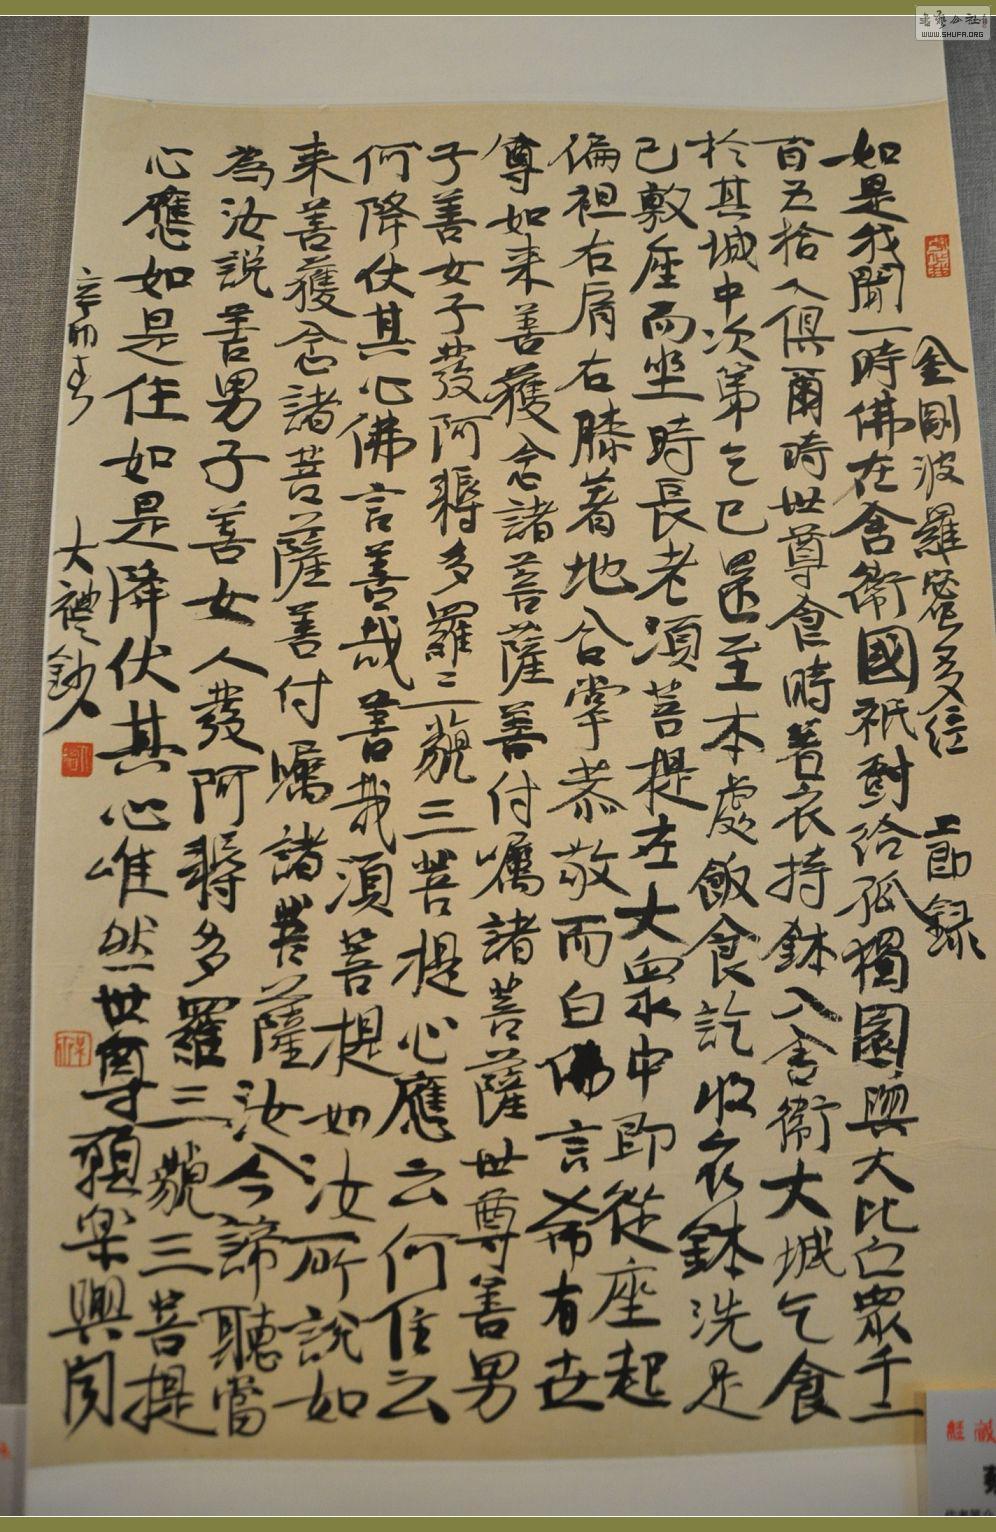 金剛波羅密多經 節錄
如是我聞一時佛在舍衛國祇樹給孤獨園與大比丘眾千二
百五拾人俱爾時世尊食時著衣持鉢入舍衛大城乞食
於其城中次第乞已還至本處飯食訖收衣鉢洗足
已敷座而坐時長老須菩提在大眾中即從座起
偏袒右肩右膝著地合掌恭敬而白佛言希有世
尊如来善護念諸菩薩善付囑諸菩薩世尊善男
子善女子發阿耨多羅三藐三菩提心應云何住云
何降伏其心佛言善哉善哉須菩提如汝所說如
来善護念諸菩薩善付囑諸菩薩汝今諦聽當
為汝說善男子善女人發阿耨多羅三藐三菩提
心應如是住如是降伏其心唯然世尊願樂興聞
辛卯春 大禮鈔
WWW.SHUFA.ORG